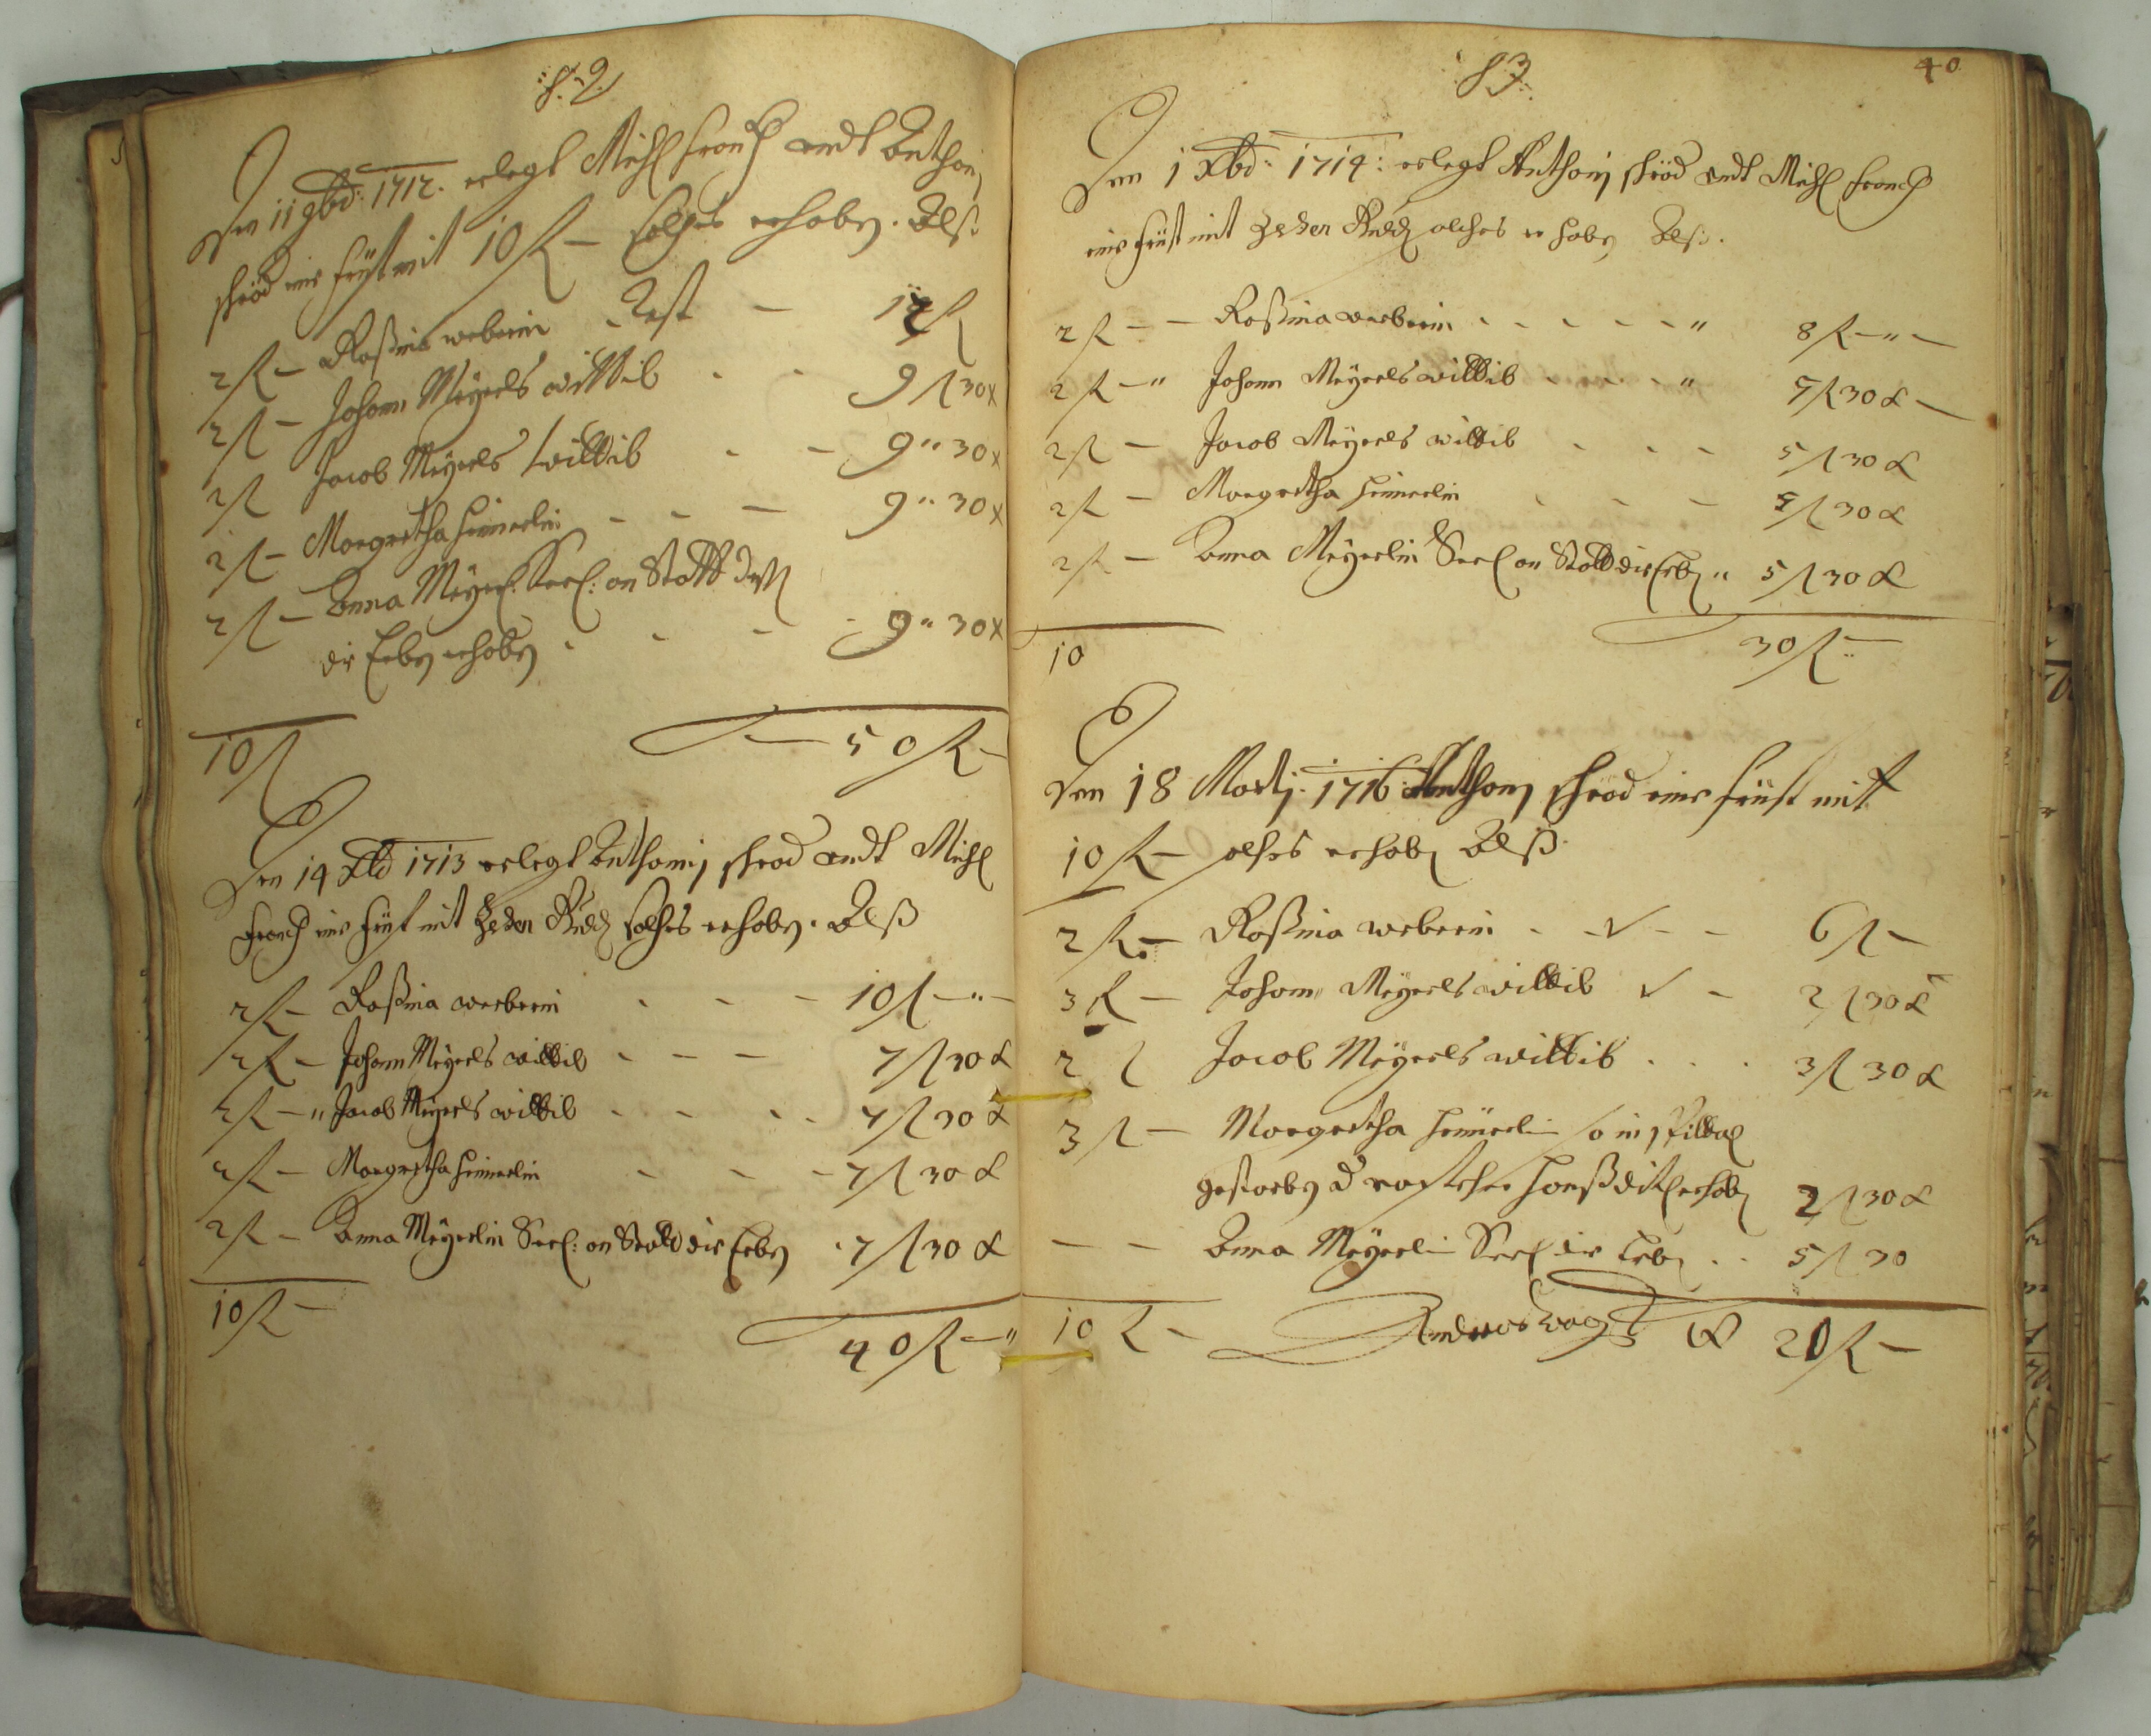 Den 11 9bd: 1712. erlegt Michl Franckh undt Anthonj
schröd eine früst mit 10 fl — solches erhoben. Alß
2 fl — Roßina weberin Rest — 12 fl
2 fl — Johann Meÿerls wittib 9 fl 30 x
2 fl Jacob Meÿerls wittib — 9 " 30 x
2 fl — Margretha — 9 " 30 x
2 fl — Anna Meÿerl: Seel: an Statt
die Erben erhoben 9 " 30 x
10 fl — 50 fl —
Den 14 Xbd 1713 erlegt Anthonij schröd undt Michl
Franckh eine früst mit Zehen solches erhoben. Alß
2 fl — Roßina weeberin — 10 fl — " —
2 fl — Johann Meÿerls wittib — 7 fl 30 x
2 fl — " Jacob Meÿerls wittib 7 fl 30 x
2 fl — Margretha — 7 fl 30 x
2 fl — Anna Meÿerlin Seel: an Statt die Erben 7 fl 30 x
10 fl —
40 fl — "
83. 40
Den 1 Xbd: 1714: erlegt Anthonij schröd undt Michl Franckh
eine früst mit Zehen solches erhoben Alß.
2 fl — — Roßina weeberin " 8 fl — " —
2 fl — " Johann Meÿerls wittib " 5 fl 30 x —
2 fl — Jacob Meÿerls wittib 5 fl 30 x
2 fl — Margretha 5 fl 30 x
2 fl — Anna Meÿerlin Seel an Statt die Erben " 5 fl 30 x
10 30 fl —
Den 18 Martij. 1716. Anthonj schröd eine früst mit
10 fl — solches erhoben Alß.
2 fl — Roßina weberin 6 fl —
3 fl — Johann Meÿerls wittib 2 fl 30 x
2 fl Jacob Meÿerls wittib 3 fl 30 x
3 fl — Margretha so in spittal
gestorben erhoben 2 fl 30 x
— — Anna Meÿerlin Seel die Erben 5 fl 30
10 fl — Andreas vogt 20 fl —